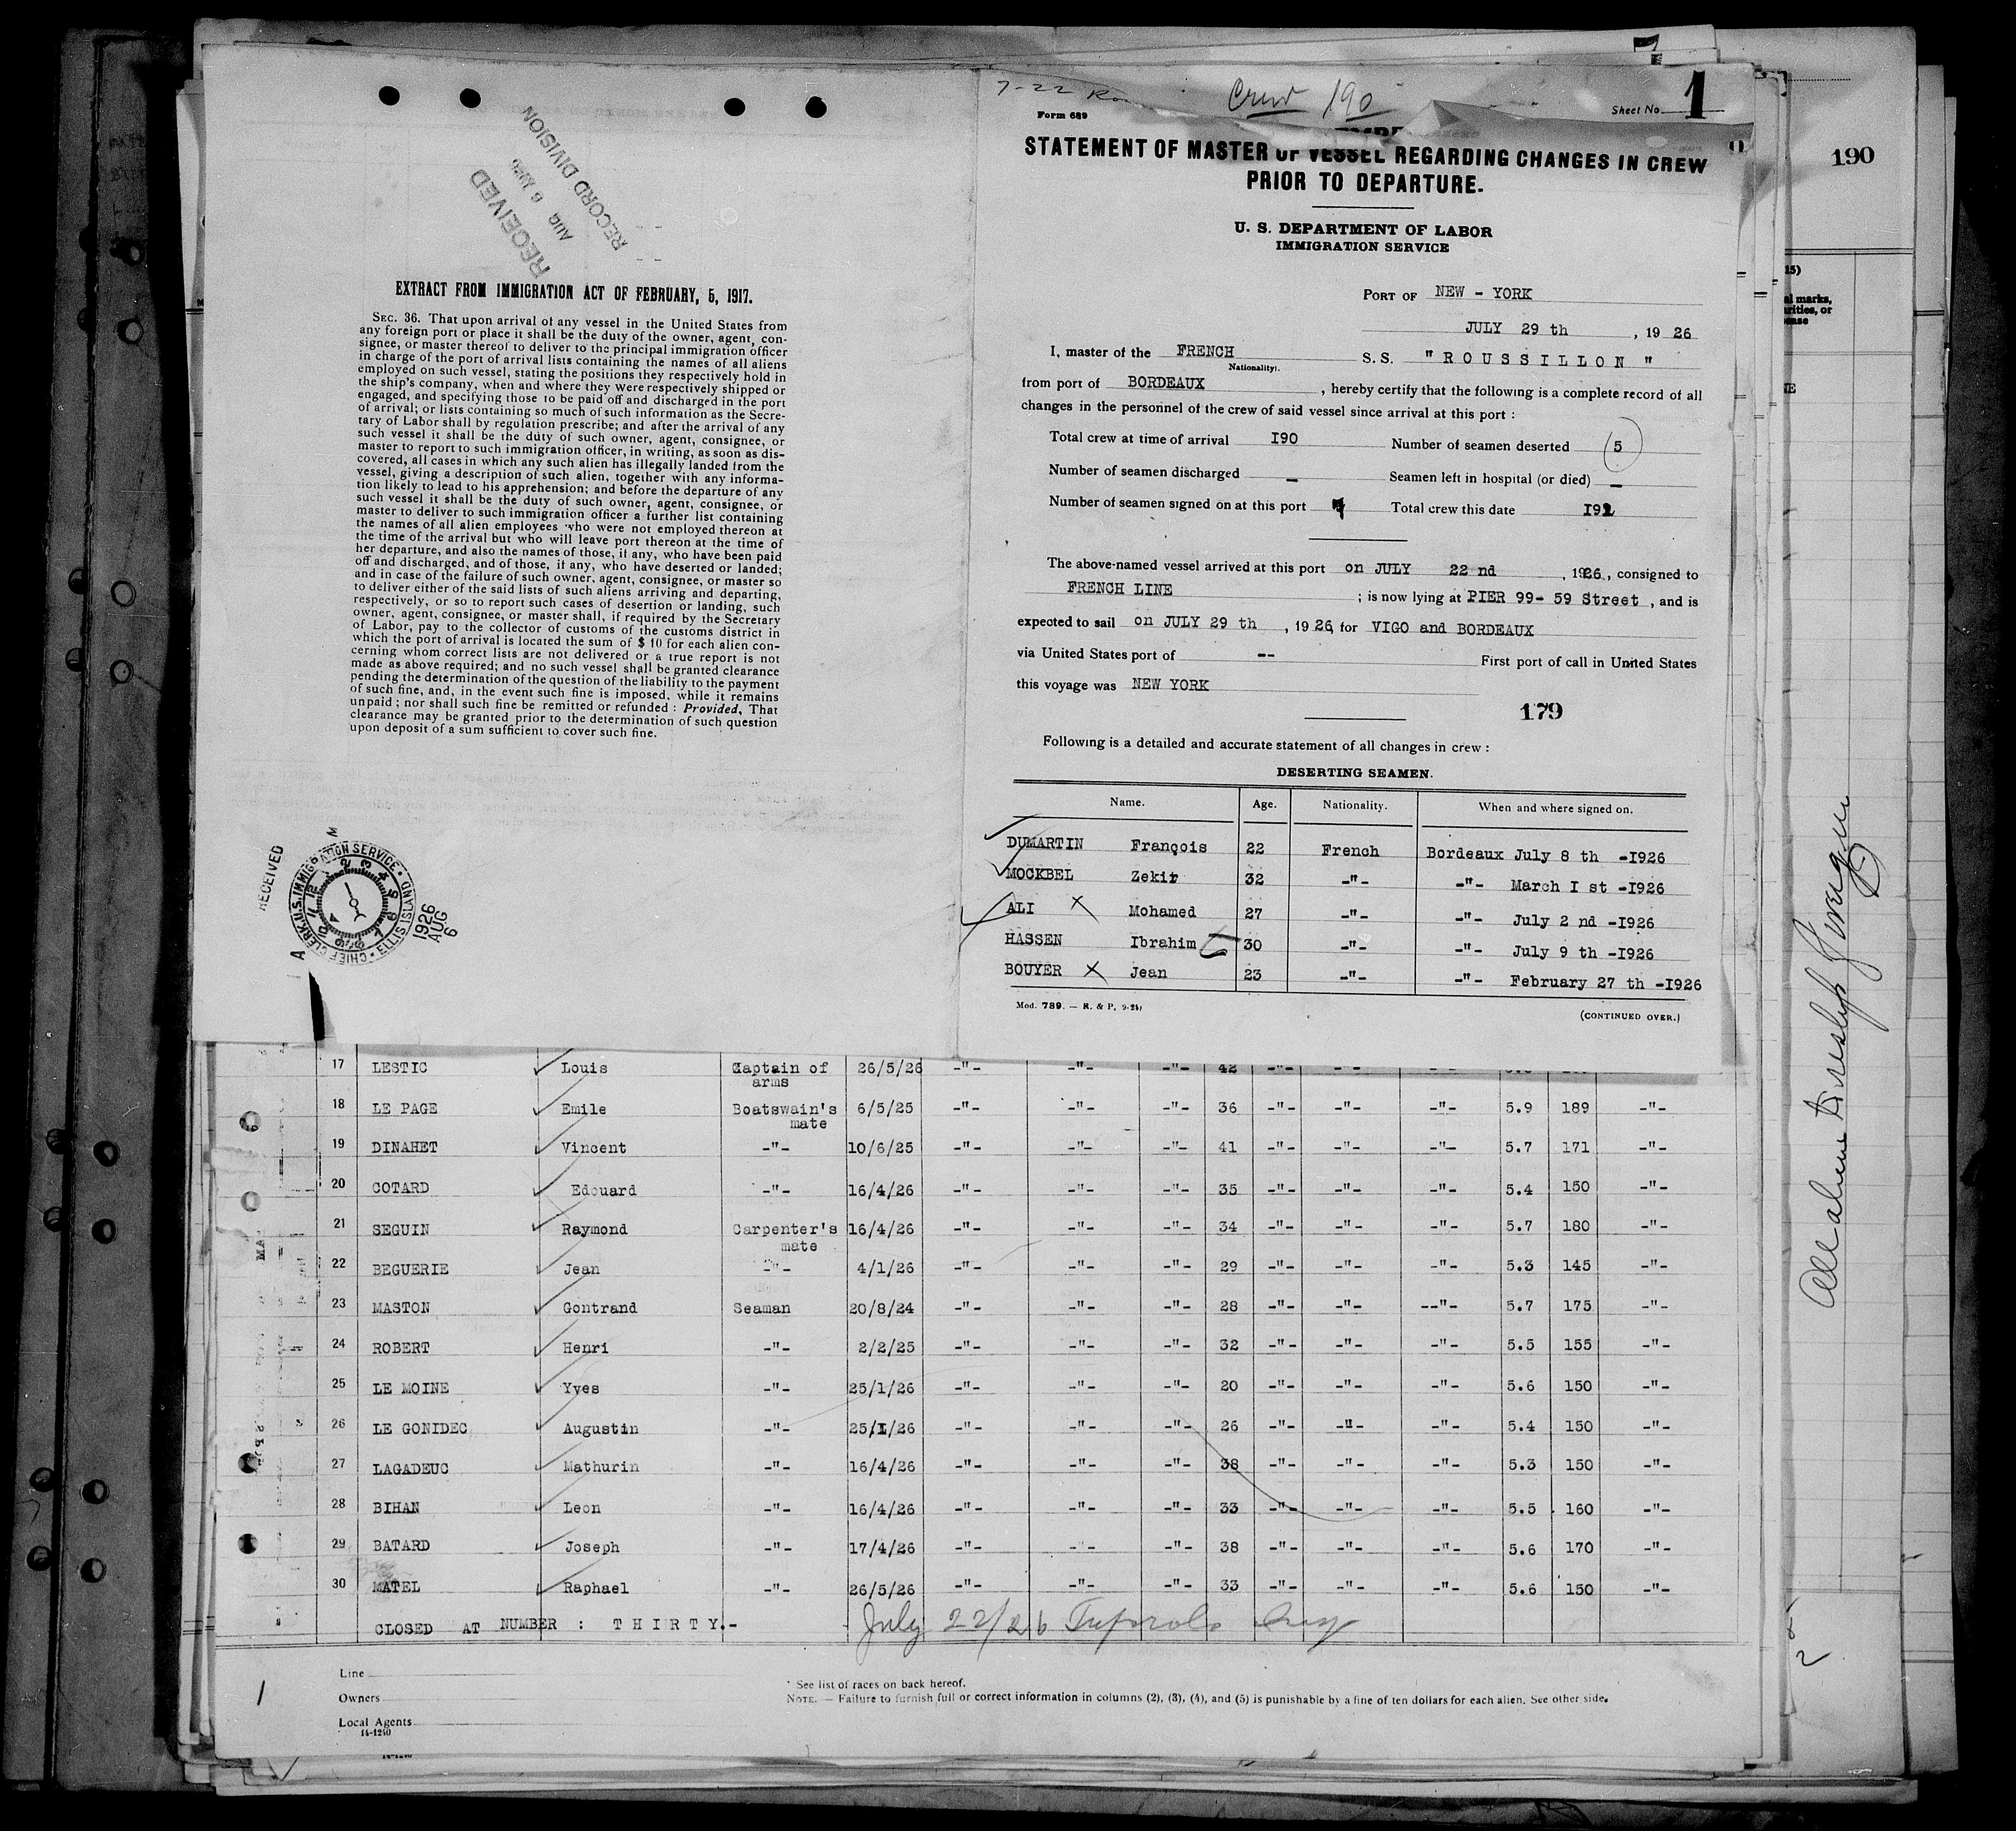 RECEIVED
AUG 6 1926
RECORD DIVISION
EXTRACT FROM IMMIGRATION ACT OF FEBRUARY, 5, 1917.
SEC. 36. That upon arrival of any vessel in the United States from
any foreign port or place it shall be the duty of the owner, agent, con-
signee, or master thereof to deliver to the principal immigration officer
in charge of the port of arrival lists containing the names of all aliens
employed on such vessel, stating the positions they respectively hold in
the ship's company, when and where they were respectively shipped or
engaged, and specifying those to be paid off and discharged in the port
of arrival; or lists containing so much of such information as the Secre-
tary of Labor shall by regulation prescribe; and after the arrival of any
such vessel it shall be the duty of such owner, agent, consignee, or
master to report to such immigration officer, in writing, as soon as dis-
covered, all cases in which any such alien has illegally landed from the
vessel, giving a description of such alien, together with any informa-
tion likely to lead to his apprehension; and before the departure of any
such vessel it shall be the duty of such owner, agent, consignee, or
master to deliver to such immigration officer a further list containing
the names of all alien employees who were not employed thereon at
the time of the arrival but who will leave port thereon at the time of
her departure, and also the names of those, if any, who have been paid
off and discharged, and of those, if any, who have deserted or landed;
and in case of the failure of such owner, agent, consignee, or master so
to deliver either of the said lists of such aliens arriving and departing,
respectively, or so to report such cases of desertion or landing, such
owner, agent, consignee, or master shall, if required by the Secretary
of Labor, pay to the collector of customs of the customs district in
which the port of arrival is located the sum of $ 10 for each alien con-
cerning whom correct lists are not delivered or a true report is not
made as above required; and no such vessel shall be granted clearance
pending the determination of the question of the liability to the payment
of such fine, and, in the event such fine is imposed, while it remains
unpaid; nor shall such fine be remitted or refunded : Provided, That
clearance may be granted prior to the determination of such question
upon deposit of a sum sufficient to cover such fine.
RECEIVED
CHIEF CLERK U.S. IMMIGRATION SERVICE • ELLIS ISLAND
1926 AUG 6
7-22
Crew 190
Form 689
Sheet No 1
STATEMENT OF MASTER OF VESSEL REGARDING CHANGES IN CREW
PRIOR TO DEPARTURE.
U. S. DEPARTMENT OF LABOR
IMMIGRATION SERVICE
PORT OF NEW - YORK
JULY 29 th , 19 26
I, master of the FRENCH S.S. " R O U S S I L L O N "
Nationality.
from port of BORDEAUX , hereby certify that the following is a complete record of all
changes in the personnel of the crew of said vessel since arrival at this port :
Total crew at time of arrival I90 Number of seamen deserted 5
Number of seamen discharged - Seamen left in hospital (or died) -
Number of seamen signed on at this port 7 Total crew this date I92
The above-named vessel arrived at this port on JULY 22 nd , 1926, consigned to
FRENCH LINE ; is now lying at PIER 99- 59 Street , and is
expected to sail on JULY 29 th , 19 26, for VIGO and BORDEAUX
via United States port of -- First port of call in United States
this voyage was NEW YORK
179
Following is a detailed and accurate statement of all changes in crew :
DESERTING SEAMEN.
Name. Age. Nationality. When and where signed on.
DUMARTIN François 22 French Bordeaux July 8 th -I926
MOCKBEL Zekir 32 -"- -"- March I st -I926
ALI X Mohamed 27 -"- -"- July 2 nd -I926
HASSEN Ibrahim 30 -"- -"- July 9 th -I926
BOUYER X Jean 23 -"- -"- February 27 th -I926
Mod. 789. — R. & P, 9-24)
(CONTINUED OVER.)
190
15)
al marks,
arities, or
ease
17 LESTIC Louis Captain of arms 26/5/26 -"- -"- -"- 42 -"-
18 LE PAGE Emile Boatswain's mate 6/5/25 -"- -"- -"- 36 -"- -"- -"- 5.9 189 -"-
19 DINAHET Vincent -"- 10/6/25 -"- -"- -"- 41 -"- -"- -"- 5.7 171 -"-
20 COTARD Edouard -"- 16/4/26 -"- -"- -"- 35 -"- -"- -"- 5.4 150 -"-
21 SEGUIN Raymond Carpenter's mate 16/4/26 -"- -"- -"- 34 -"- -"- -"- 5.7 180 -"-
22 BEGUERIE Jean -"- 4/1/26 -"- -"- -"- 29 -"- -"- -"- 5.3 145 -"-
23 MASTON Gontrand Seaman 20/8/24 -"- -"- -"- 28 -"- -"- --"- 5.7 175 -"-
24 ROBERT Henri -"- 2/2/25 -"- -"- -"- 32 -"- -"- -"- 5.5 155 -"-
25 LE MOINE Yves -"- 25/1/26 -"- -"- -"- 20 -"- -"- -"- 5.6 150 -"-
26 LE GONIDEC Augustin -"- 25/1/26 -"- -"- -"- 26 -"- -"- -"- 5.4 150 -"-
27 LAGADEUC Mathurin -"- 16/4/26 -"- -"- -"- 38 -"- -"- -"- 5.3 150 -"-
28 BIHAN Leon -"- 16/4/26 -"- -"- -"- 33 -"- -"- -"- 5.5 160 -"-
29 BATARD Joseph -"- 17/4/26 -"- -"- -"- 38 -"- -"- -"- 5.6 170 -"-
30 MATEL Raphael -"- 26/5/26 -"- -"- -"- 33 -"- -"- -"- 5.6 150 -"-
CLOSED AT NUMBER : T H I R T Y.-
July 22/26
1
Line
Owners
Local Agents
14-1240
* See list of races on back hereof.
NOTE. — Failure to furnish full or correct information in columns (2), (3), (4), and (5) is punishable by a fine of ten dollars for each alien. See other side.